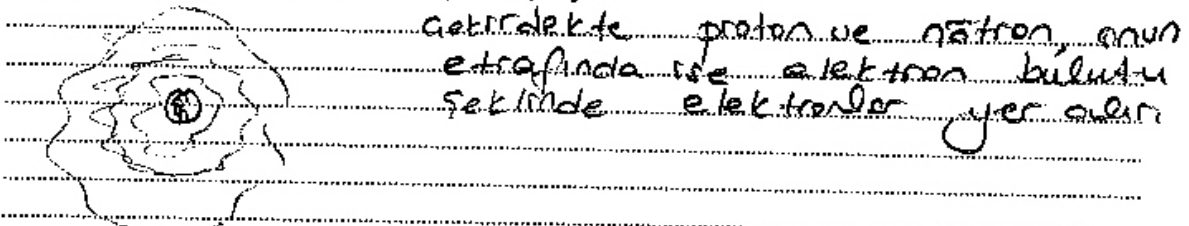 Çekirdekte proton ve nötron, onun
etrafında ise elektron bulutu
şeklinde elektronlar yer alır